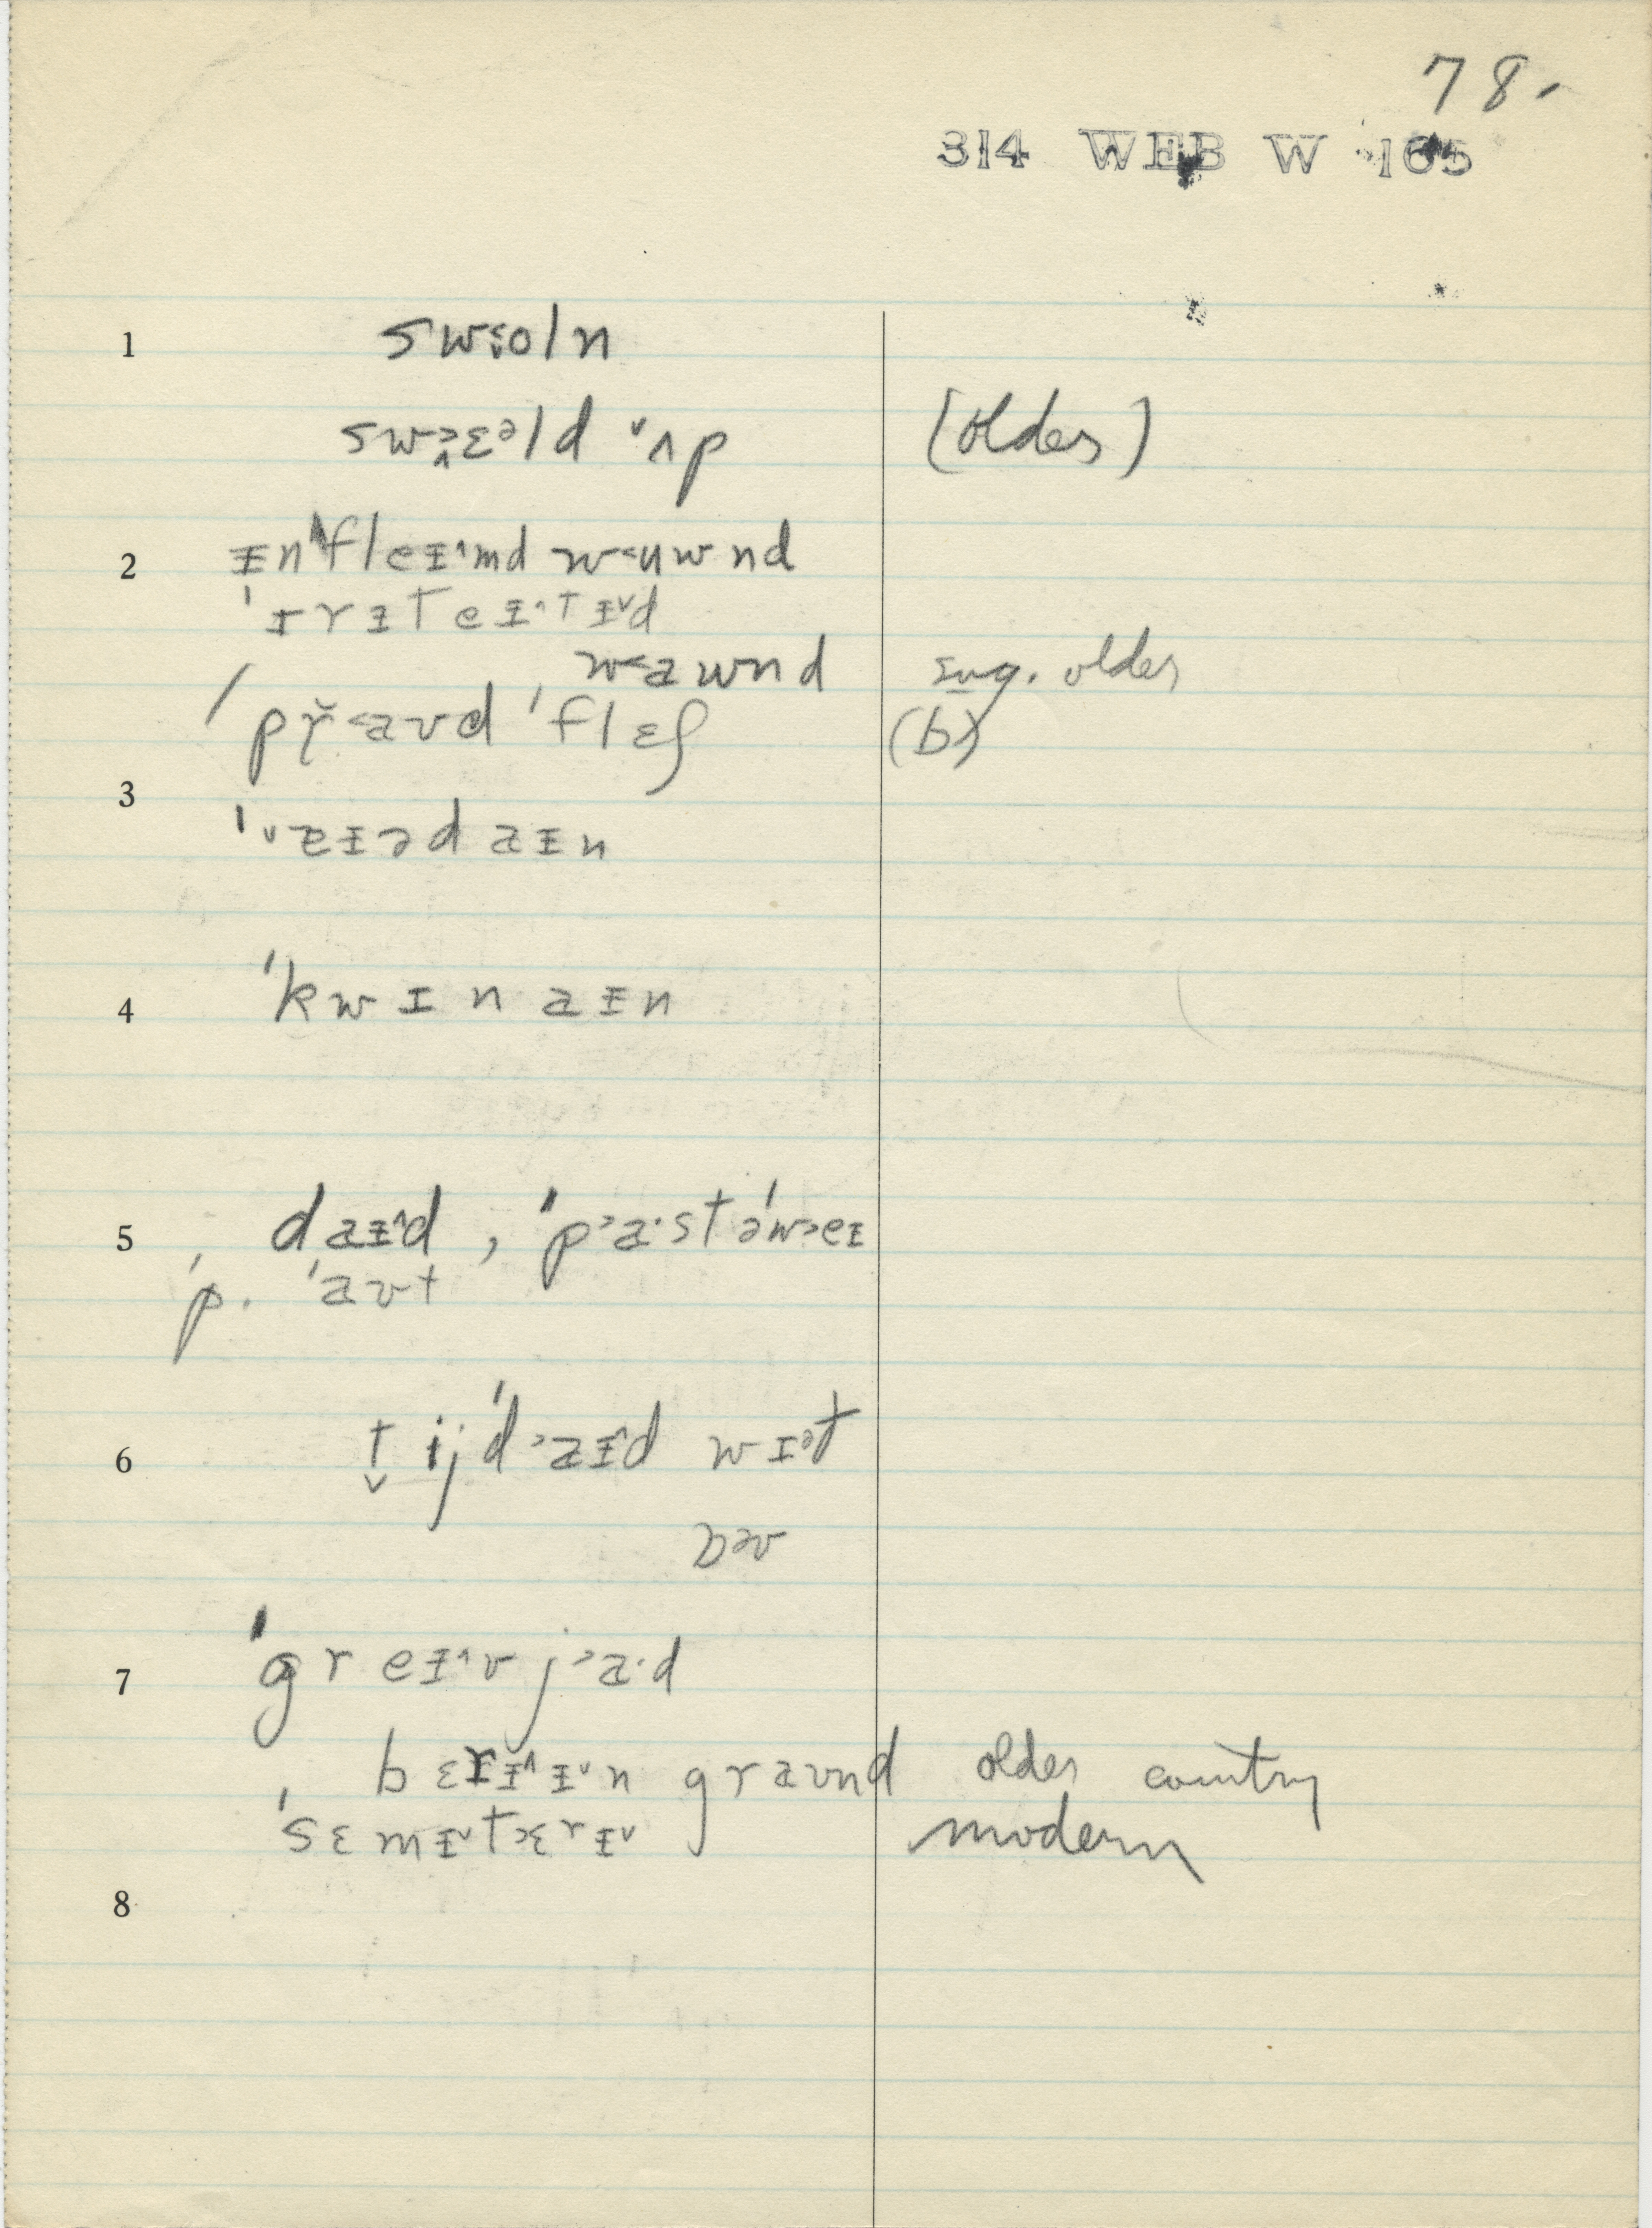 78.
314 WEB W 165
1 sw˂oln
swɔ̭ɛᵊld ˅ʌp (older)
2 ᵻnˈfleᵻ˄md w˂uwnd
ˈɪrᵻteᵻ˄tᵻ˅d
w˂awnd sug. older
ˈpr̆˂aʊd ˈflɛʃ (b)
3 ˈ˅eᵻəd aᵻn
4 ˈkwɪnaᵻn
5 daᵻ˄d, ˈp˃a·stəˈw˃eɪ
ˈp. ˈaʊt
6 t̬ijˈd˃aᵻ˄d wɪᵊt
7 ˈgreᵻ˄v j˃a·d
bɛrᵻ˄ᵻ˅n graʊnd older country
ˈsɛmᵻ˅t˃ɛrᵻ˅ modern
8